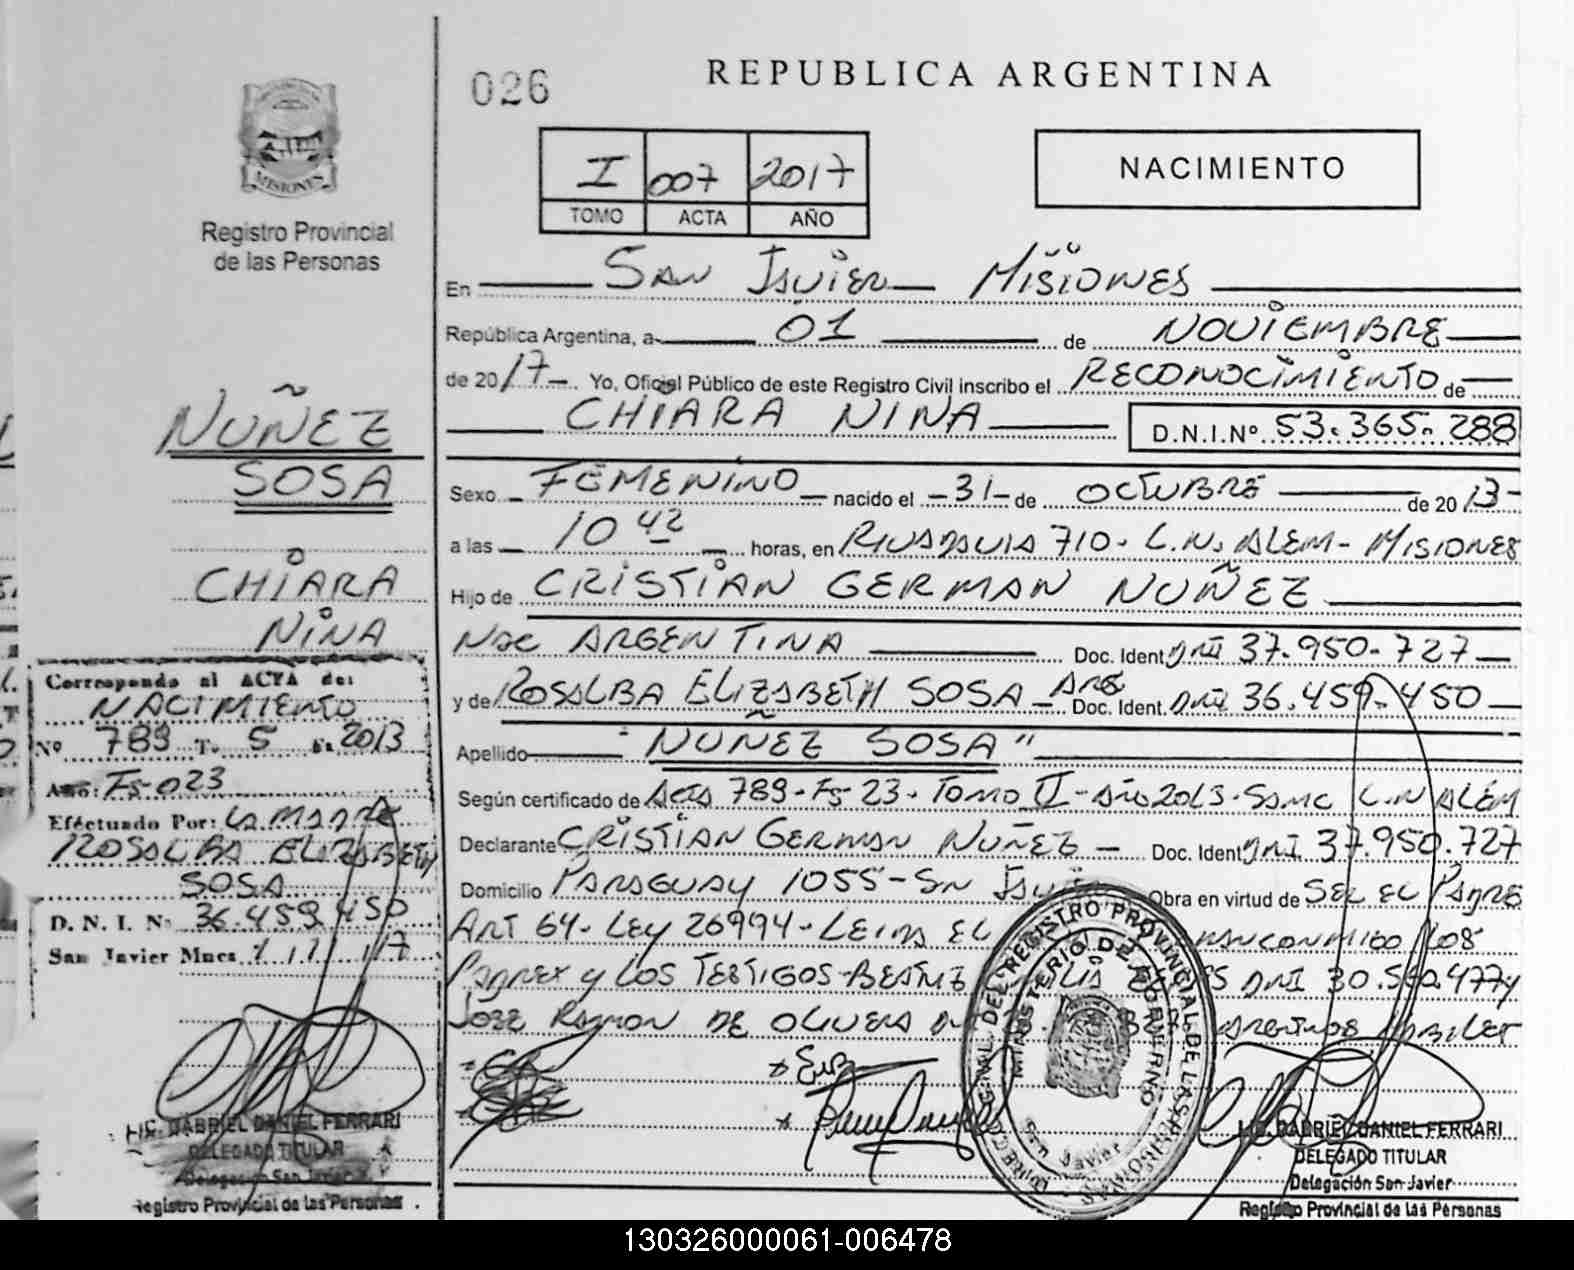 026
REPUBLICA ARGENTINA
I 007 2017
TOMO ACTA AÑO
NACIMIENTO
MISIONES
Registro Provincial
de las Personas
NUÑEZ
SOSA
CHIARA
NINA
Corresponde al ACTA de:
NACIMIENTO
Nº 789 T. 5 2013
Año: Fs-023
Efectuado Por: LA MADRE
ROSALBA ELIZABETH
SOSA
D. N. I. Nº 36.459.450
San Javier Mnes 1/11/17
LIC. GABRIEL DANIEL FERRARI
DELEGADO TITULAR
Delegación San Javier
Registro Provincial de las Personas
En SAN JAVIER MISIONES
República Argentina, a 01 de NOVIEMBRE
de 2017 Yo, Oficial Público de este Registro Civil inscribo el RECONOCIMIENTO de
CHIARA NINA D.N.I.Nº 53.365.288
Sexo FEMENINO nacido el 31 de OCTUBRE de 2013
a las 10 42 horas, en RIVADAVIA 710 - L.N. ALEM - MISIONES
Hijo de CRISTIAN GERMAN NUÑEZ
NAC ARGENTINA Doc. Ident. DNI 37.950.727
y de ROSALBA ELIZABETH SOSA - ARG Doc. Ident. DNI 36.459.450
Apellido "NUÑEZ SOSA"
Según certificado de ACTA 789 - Fs 23 - TOMO - AÑO 2013 - SAMC L.N ALEM
Declarante CRISTIAN GERMAN NUÑEZ - Doc. Ident. DNI 37.950.727
Domicilio PARAGUAY 1055 - SN JAVIER Obra en virtud de SER EL PADRE
ART 64 - LEY 26994 - LEIDA EL CONMIGO LOS
PADRES Y LOS TESTIGOS - BEATRIZ DNI 30.560.477 Y
JOSE RAMON DE OLIVERA ARGENTINOS
DIRECC. GENERAL DEL REGISTRO PROVINCIAL DE LAS PERSONAS
MINISTERIO DE GOBIERNO
San Javier
LIC. GABRIEL DANIEL FERRARI
DELEGADO TITULAR
Delegación San Javier
Registro Provincial de las Personas
130326000061-006478